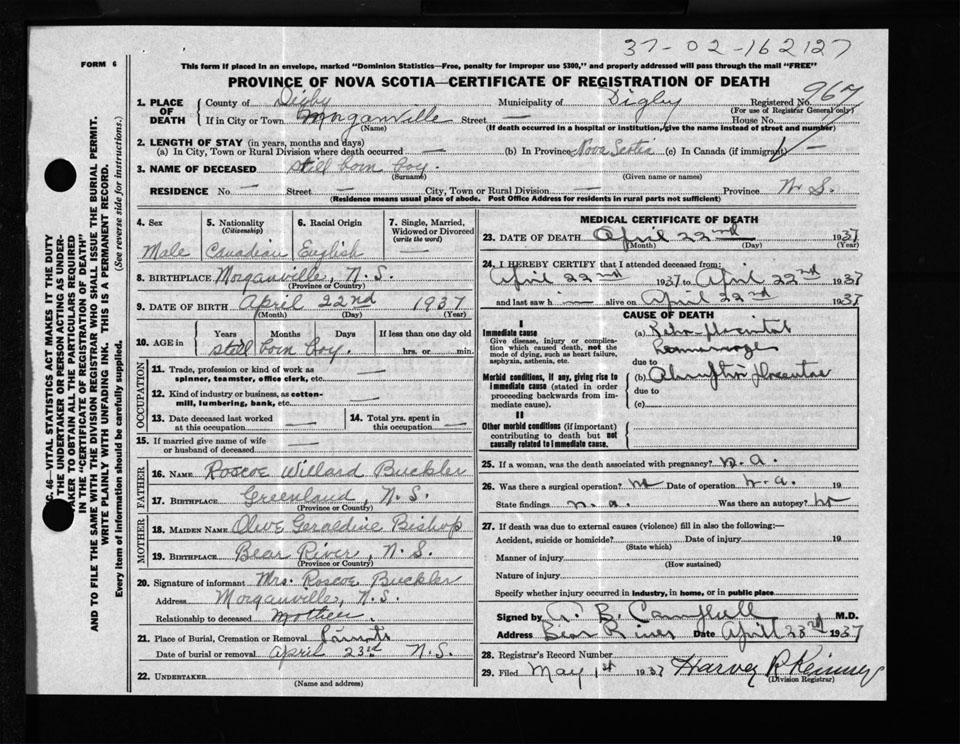 37-02-162127
FORM 6
This form if placed in an envelope, marked "Dominion Statistics—Free, penalty for improper use $300," and properly addressed will pass through the mail "FREE"
PROVINCE OF NOVA SCOTIA—CERTIFICATE OF REGISTRATION OF DEATH
967
1. PLACE OF DEATH County of Digby Municipality of Digby Registered No.
(For use of Registrar General only)
If in City or Town Morganville Street — House No.
(Name) (If death occurred in a hospital or institution, give the name instead of street and number)
2. LENGTH OF STAY (in years, months and days)
(a) In City, Town or Rural Division where death occurred — (b) In Province Nova Scotia (c) In Canada (if immigrant) —
3. NAME OF DECEASED still born boy.
(Surname) (Given name or names)
RESIDENCE No. — Street — City, Town or Rural Division — Province N.S.
(Residence means usual place of abode. Post Office Address for residents in rural parts not sufficient)
4. Sex 5. Nationality (Citizenship) 6. Racial Origin 7. Single, Married, Widowed or Divorced (write the word)
Male Canadian English
8. BIRTHPLACE Morganville, N.S.
(Province or Country)
9. DATE OF BIRTH April 22nd 1937
(Month) (Day) (Year)
10. AGE in Years Months Days If less than one day old
still born boy. hrs. or min.
OCCUPATION
11. Trade, profession or kind of work as spinner, teamster, office clerk, etc. —
12. Kind of industry or business, as cotton-mill, lumbering, bank, etc. —
13. Date deceased last worked at this occupation — 14. Total yrs. spent in this occupation —
15. If married give name of wife or husband of deceased —
FATHER
16. NAME Roscoe Willard Buckler
17. BIRTHPLACE Greenland, N.S.
(Province or Country)
MOTHER
18. MAIDEN NAME Olive Geraldine Bishop
19. BIRTHPLACE Bear River, N.S.
(Province or Country)
20. Signature of informant Mrs. Roscoe Buckler
Address Morganville, N.S.
Relationship to deceased Mother.
21. Place of Burial, Cremation or Removal
Date of burial or removal April 23rd N.S.
22. UNDERTAKER
(Name and address)
MEDICAL CERTIFICATE OF DEATH
23. DATE OF DEATH April 22nd 1937
(Month) (Day) (Year)
24. I HEREBY CERTIFY that I attended deceased from:
April 22nd 1937 to April 22nd 1937
and last saw h — alive on April 22nd 1937
CAUSE OF DEATH
I
Immediate cause (a)
Give disease, injury or complication which caused death, not the mode of dying, such as heart failure, asphyxia, asthenia, etc.
due to
Morbid conditions, if any, giving rise to immediate cause (stated in order proceeding backwards from immediate cause). (b)
due to
(c)
II
Other morbid conditions (if important) contributing to death but not causally related to immediate cause.
25. If a woman, was the death associated with pregnancy? n.a.
26. Was there a surgical operation? no Date of operation n.a. 19
State findings n.a. Was there an autopsy? no
27. If death was due to external causes (violence) fill in also the following:—
Accident, suicide or homicide? Date of injury 19
(State which)
Manner of injury
(How sustained)
Nature of injury
Specify whether injury occurred in industry, in home, or in public place
Signed by A. B. Campbell M.D.
Address Bear River Date April 23rd 1937
28. Registrar's Record Number
29. Filed May 1st 1937 Harvey R Kinney
(Division Registrar)
C. 46—VITAL STATISTICS ACT MAKES IT THE DUTY
F THE UNDERTAKER OR PERSON ACTING AS UNDER-
TAKER TO OBTAIN ALL THE PARTICULARS REQUIRED
IN THE "CERTIFICATE OF REGISTRATION OF DEATH"
AND TO FILE THE SAME WITH THE DIVISION REGISTRAR WHO SHALL ISSUE THE BURIAL PERMIT.
WRITE PLAINLY WITH UNFADING INK. THIS IS A PERMANENT RECORD.
Every item of information should be carefully supplied. (See reverse side for instructions.)